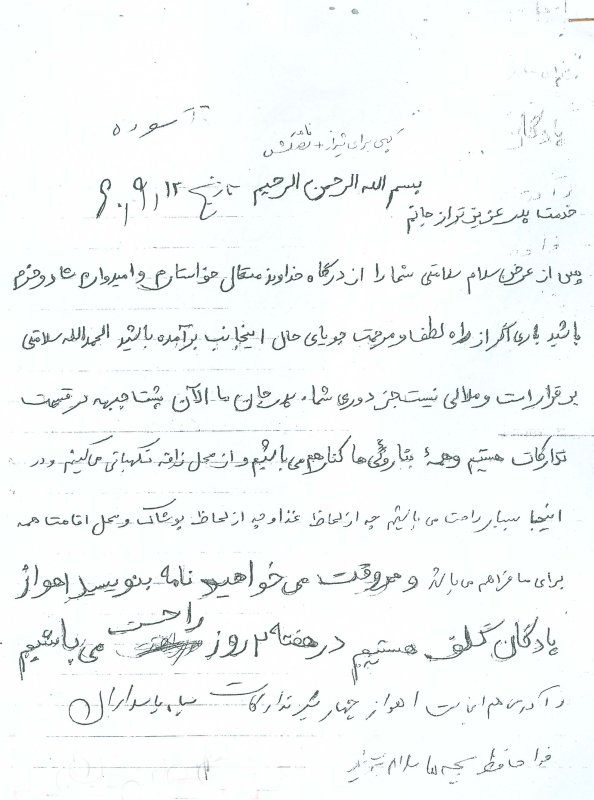 پادگان
کپی برای شیراز +
بسم الله الرحمن الرحیم تاریخ ۶۰/۹/۱۲
خدمت پدر عزیز تر از جانم
پس از عرض سلام سلامتی شما را از درگاه خداوند متعال خواستارم و امیدوارم شاد و خرم
باشید باری اگر از راه لطف و مرحمت جویای حال اینجانب برآمده باشید الحمدالله سلامتی
برقرار است و ملالی نیست جز دوری شما. پدر جان ما الآن پشت جبهه در قسمت
تدارکات هستیم و همهٔ ها کنار هم می باشیم و از محل نگهبانی می کنیم و در
اینجا بسیار راحت می باشیم چه از لحاظ غذا و چه از لحاظ پوشاک و محل اقامت همه
برای ما فراهم می باشد و هر وقت می خواهید نامه بنویسید اهواز
پادگان گلف هستیم در هفته ۲ روز راحت می باشیم
و آدرس هم این است اهواز چهار شیر تدارکات سپاه پاسداران
خدا حافظ بچه ها سلام